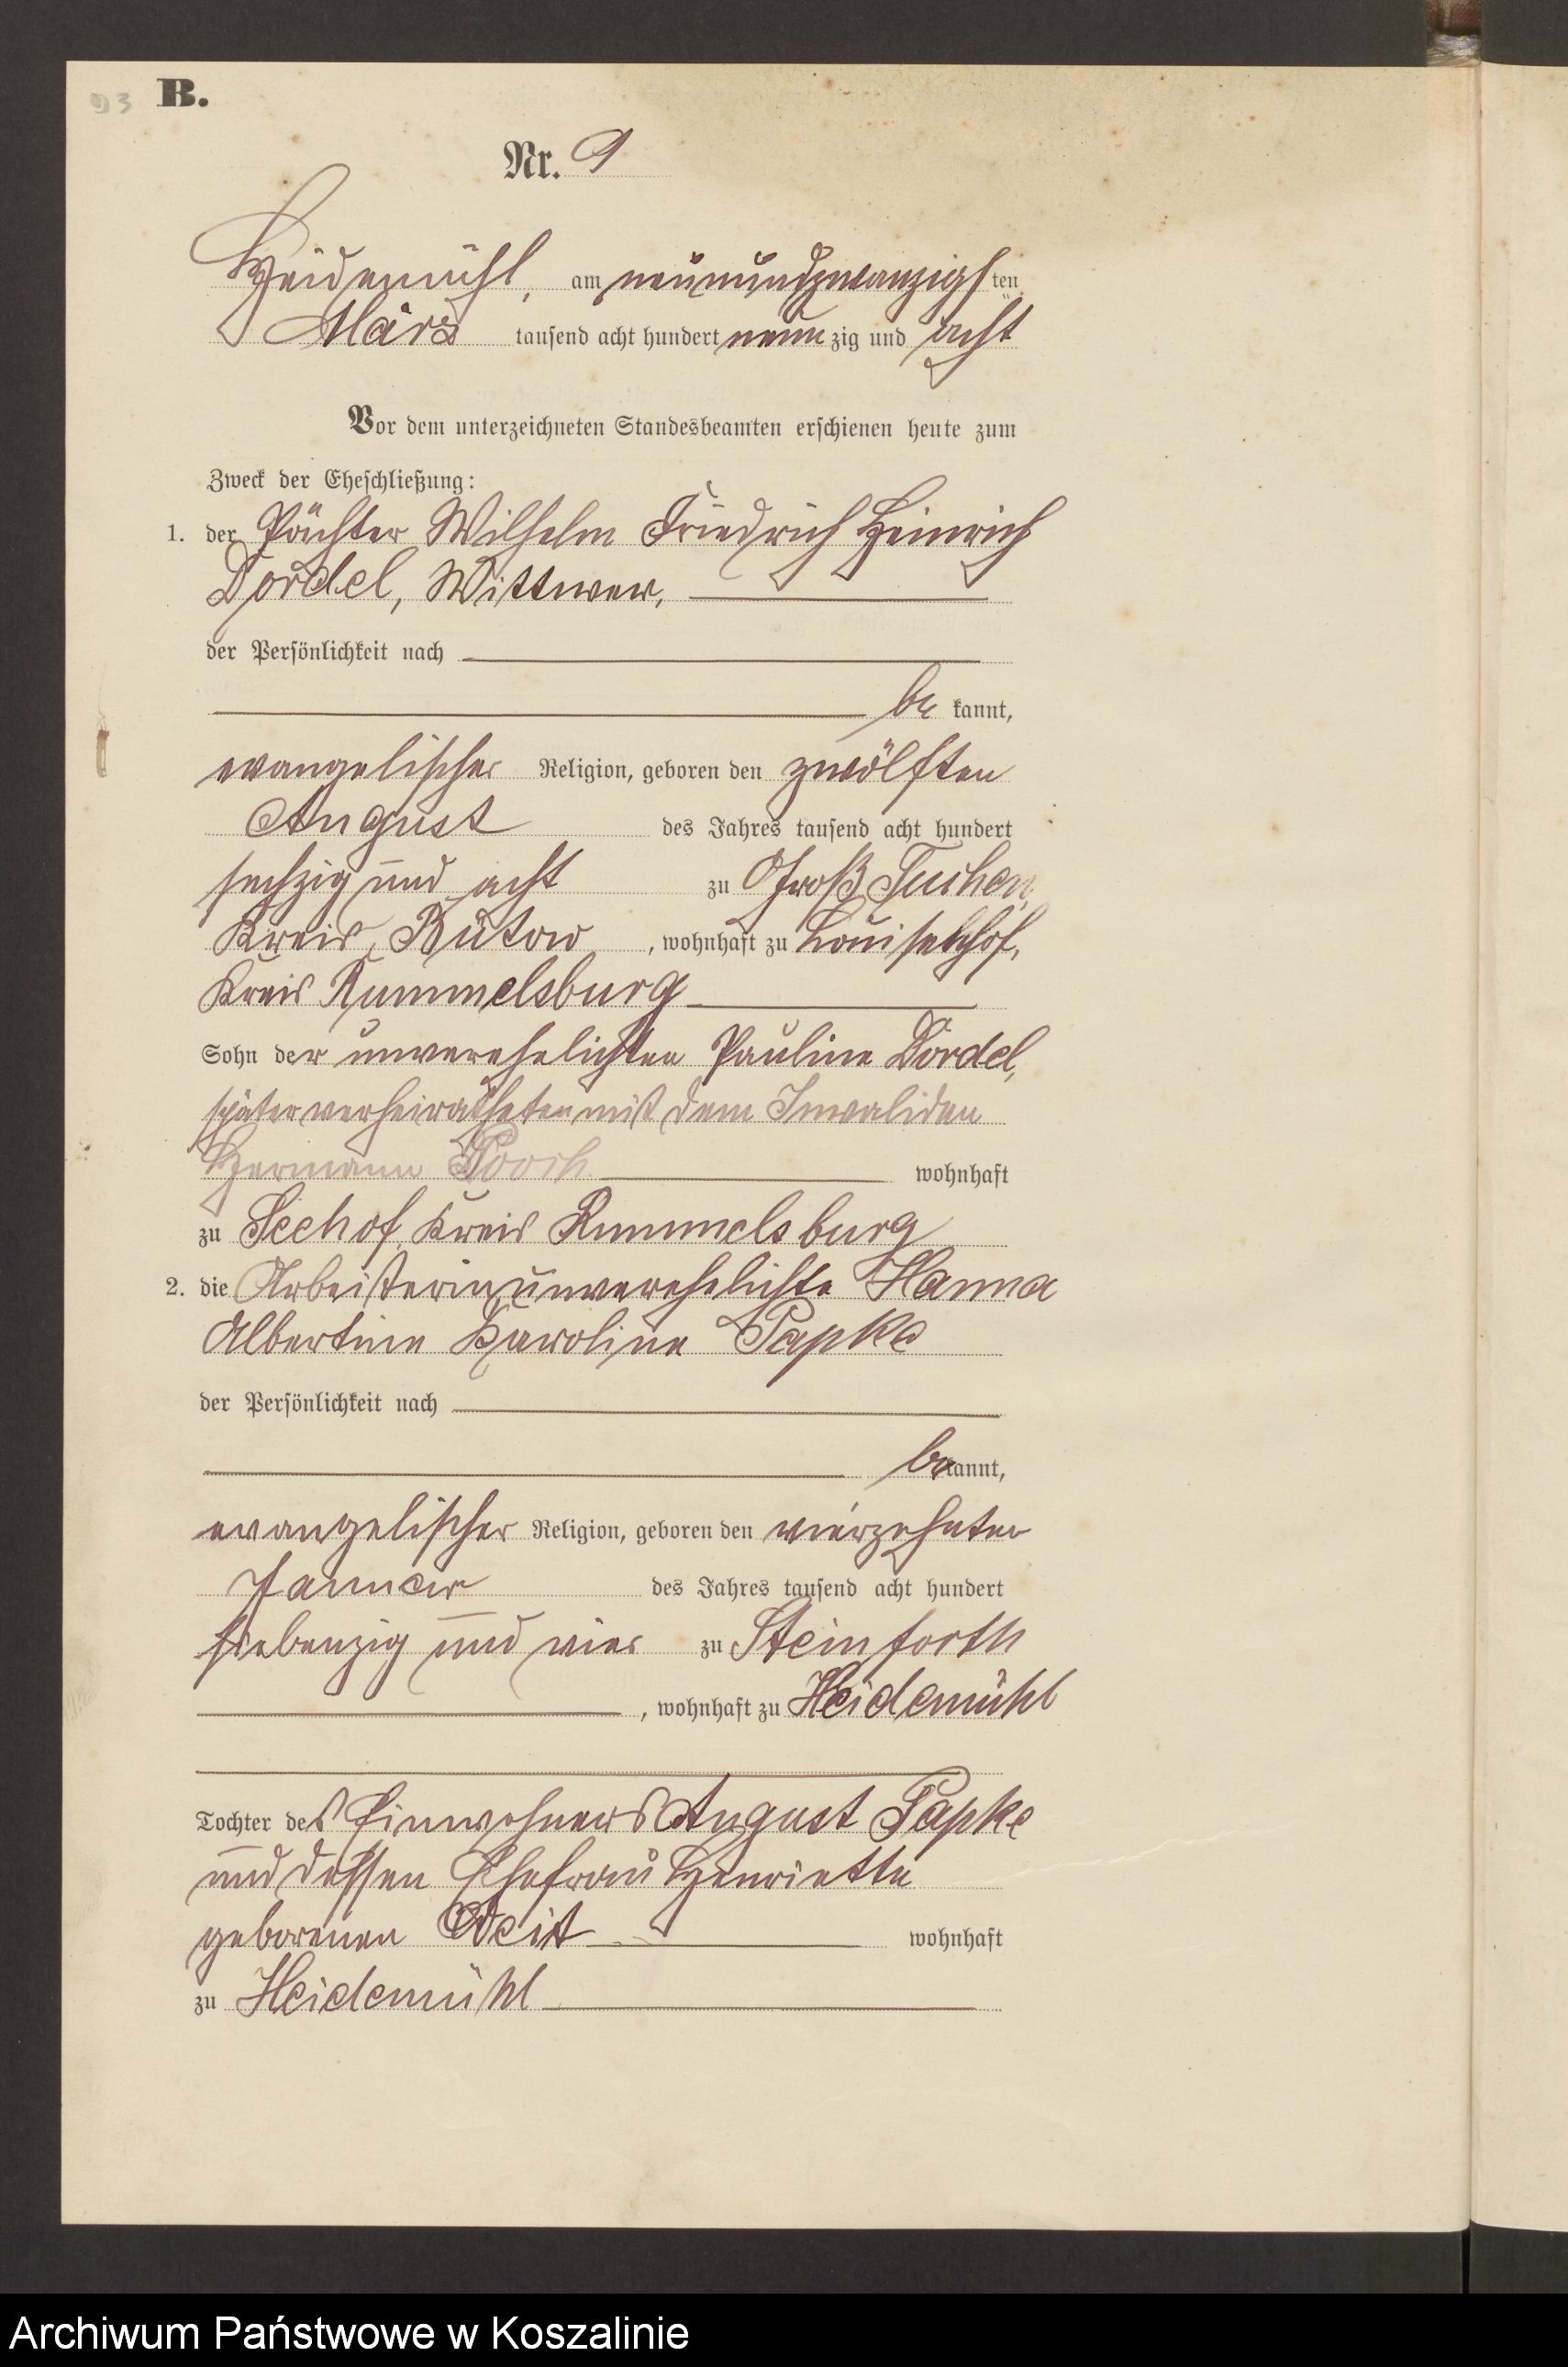 93 B.
Nr. 9
Heidemühl, am neunundzwanzigsten
März tausend acht hundert neunzig und acht
Vor dem unterzeichneten Standesbeamten erschienen heute zum
Zweck der Eheschließung:
1. der Pächter Wilhelm Friedrich Heinrich
Dordel, Wittwer,
der Persönlichkeit nach
bekannt,
evangelischer Religion, geboren den zwölften
August des Jahres tausend acht hundert
sechzig und acht zu Groß Tuchen,
Kreis Bütow, wohnhaft zu Louisenhof,
Kreis Rummelsburg
Sohn der unverehelichten Pauline Dordel,
später verheiratheten mit dem Invaliden
Hermann wohnhaft
zu Seehof, Kreis Rummelsburg
2. die Arbeiterin, unverehelichte Hanna
Albertine Karoline Papke
der Persönlichkeit nach
bekannt,
evangelischer Religion, geboren den vierzehnten
Januar des Jahres tausend acht hundert
siebenzig und vier zu Steinforth
, wohnhaft zu Heidemühl
Tochter des Einwohners August Papke
und dessen Ehefrau Henriette
geborenen Weit wohnhaft
zu Heidemühl
Archiwum Państwowe w Koszalinie